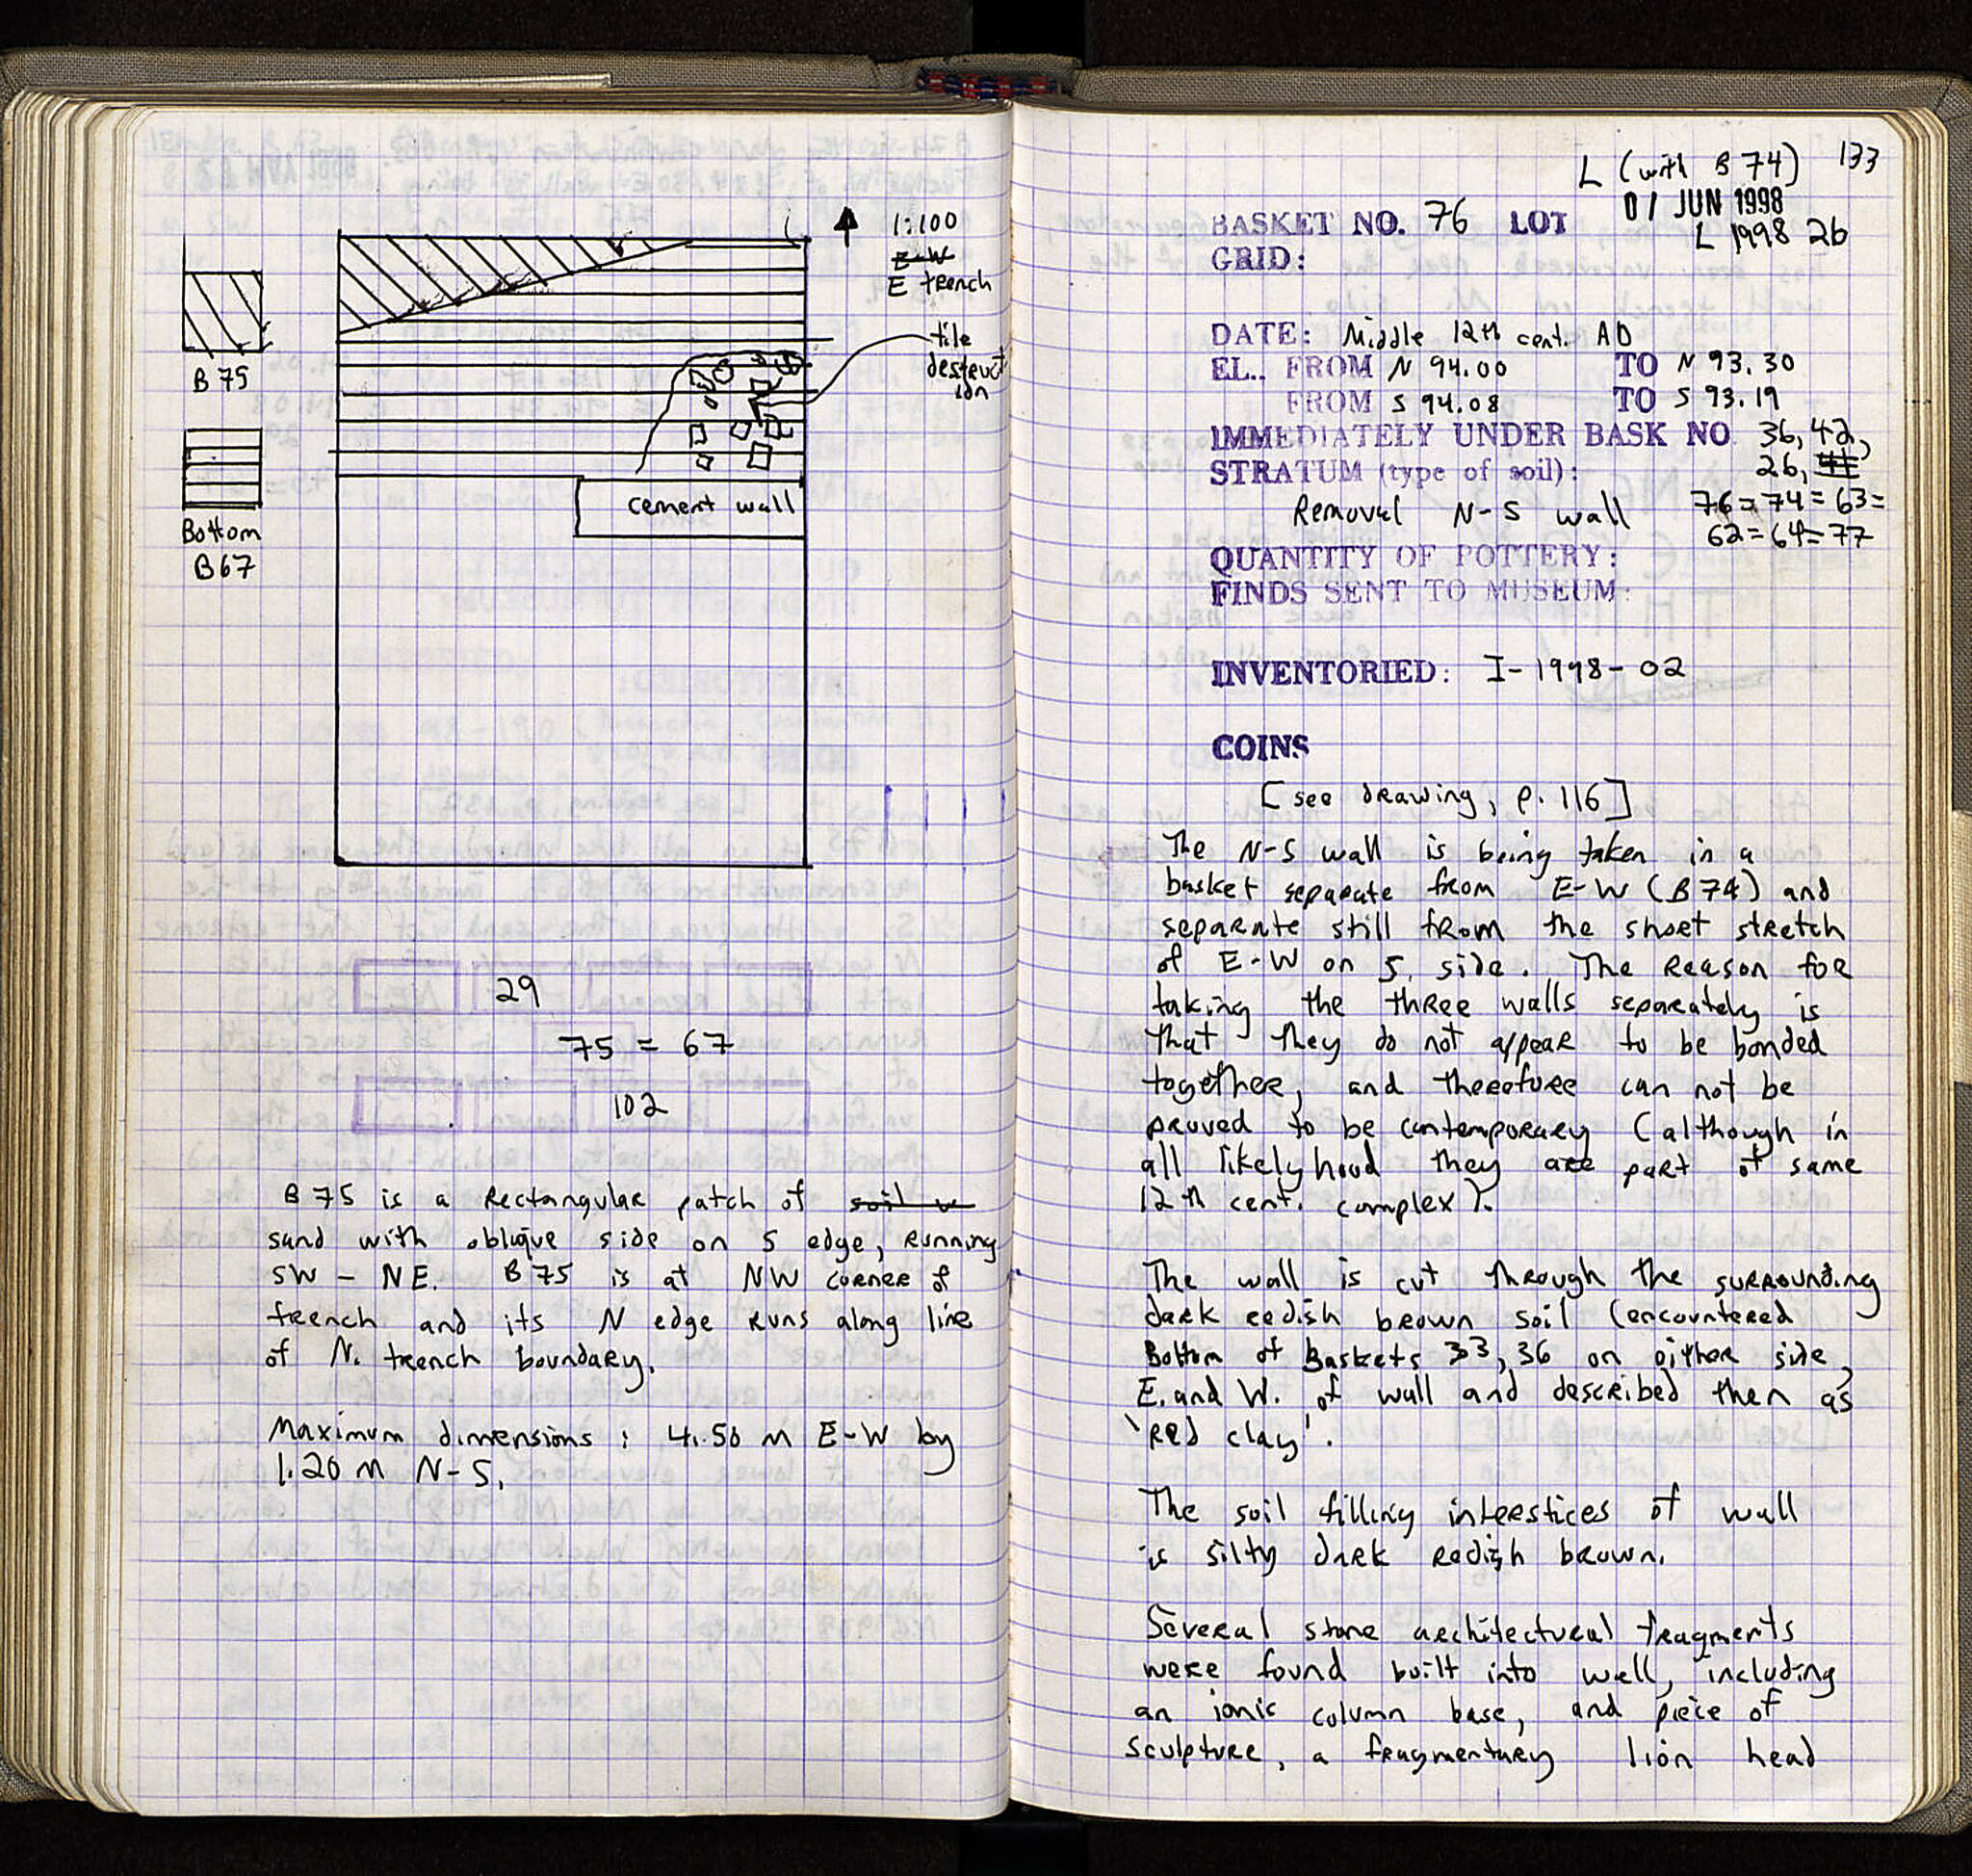 1:100
E-W
E trench
tile
destruct
ion
B 75
cement wall
Bottom
B67
29
75 = 67
102
B 75 is a Rectangular patch of soil w
sand with oblique side on S edge, running
SW - NE. B 75 is at NW corner of
trench and its N edge runs along line
of N. trench boundary.
Maximum dimensions : 4.50 m E-W by
1.20 m N-S.
L (with B 74) 133
01 JUN 1998
BASKET NO. 76 LOT L 1998 26
GRID:
DATE: Middle 12th cent. AD
EL.. FROM N 94.00 TO N 93.30
FROM S 94.08 TO S 93.19
IMMEDIATELY UNDER BASK NO 36, 42,
STRATUM (type of soil): 26, 44
Removal N-S wall 76=74=63=
62=64=77
QUANTITY OF POTTERY:
FINDS SENT TO MUSEUM:
INVENTORIED: I-1998-02
COINS
[see drawing, p. 116]
The N-S wall is being taken in a
basket separate from E-W (B 74) and
separate still from the short stretch
of E-W on S. side. The reason for
taking the three walls separately is
that they do not appear to be bonded
together, and therefore can not be
proved to be contemporary (although in
all likelyhood they are part of same
12th cent. complex).
The wall is cut through the surrounding
dark redish brown soil (encountered
Bottom of Baskets 33, 36 on either side,
E. and W. of wall and described then as
'red clay'.
The soil filling interstices of wall
is silty dark redish brown.
Several stone architectural fragments
were found built into wall, including
an ionic column base, and piece of
sculpture, a fragmentary lion head